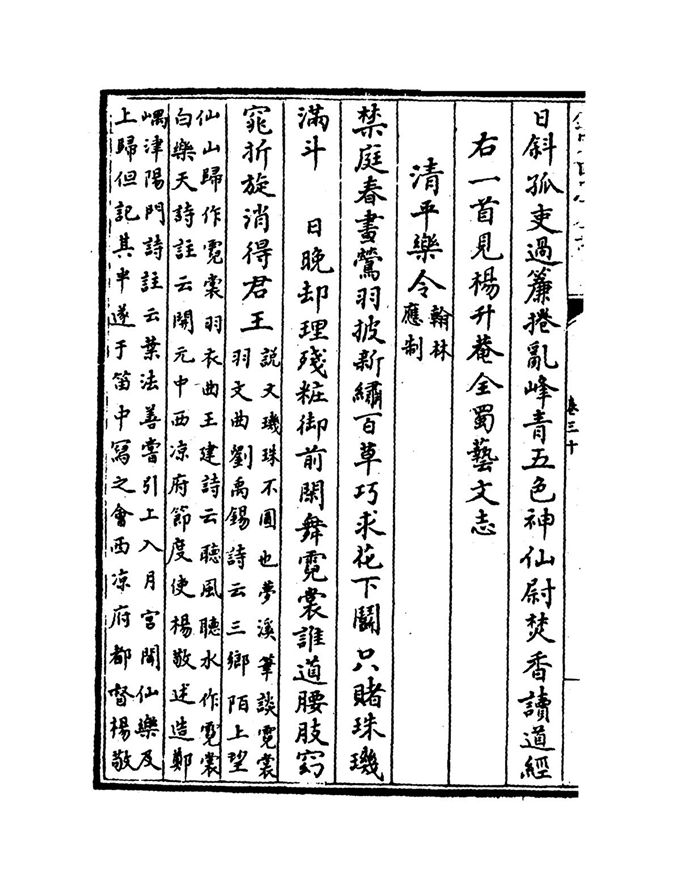 卷三十
日斜孤吏過簾捲亂峰青五色神仙尉焚香讀道經
右一首見楊升菴全蜀藝文志
清平樂令翰林
應制
禁庭春晝鶯羽披新繡百草巧求花下鬭只賭珠璣
滿斗　日晚却理殘粧御前閑舞霓裳誰道腰肢窈
窕折旋消得君王
說文璣珠不圓也夢溪筆談霓裳
羽文曲劉禹錫詩云三鄉陌上望
仙山歸作霓裳羽衣曲王建詩云聽風聽水作霓裳
白樂天詩註云開元中西凉府節度使楊敬述造鄭
嵎津陽門詩註云葉法善嘗引上入月宮聞仙樂及
上歸但記其半遂于笛中寫之會西凉府都督楊敬